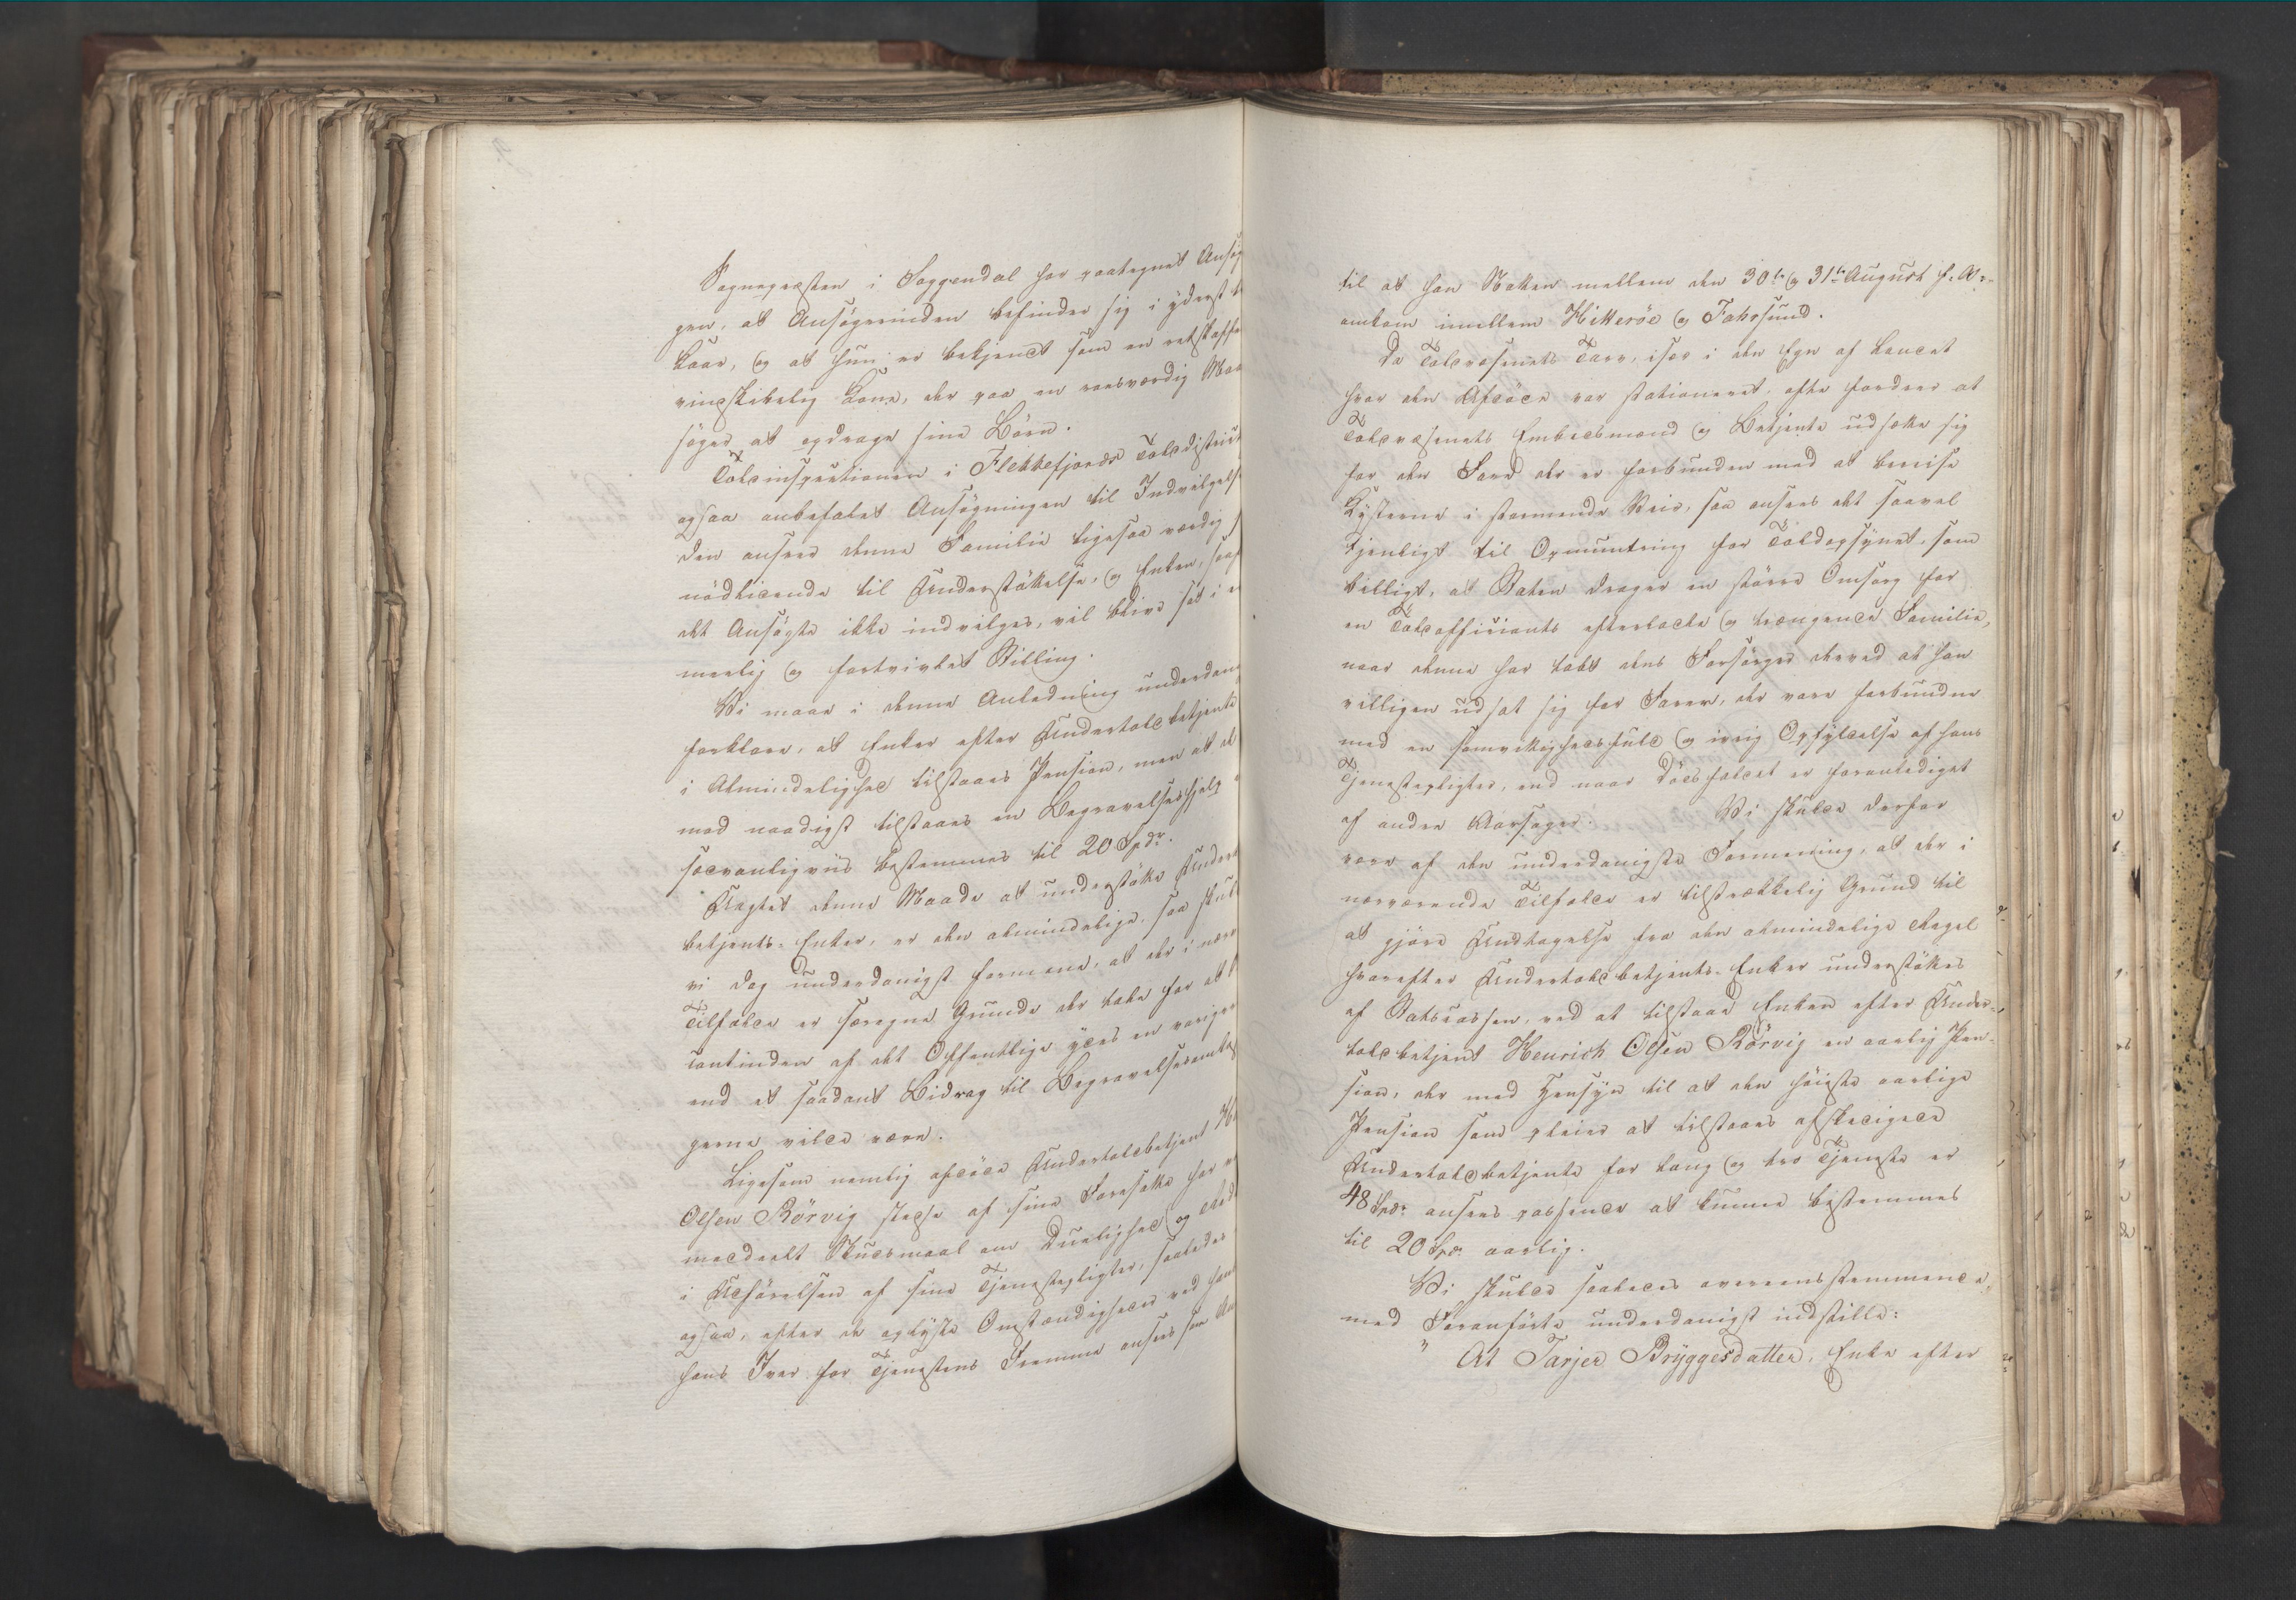 Sognepresten i Soggendal har paategnet Ansög
gen, at Ansögerinden befinder sig i yderst
Kaar, og at hun er bekjendt som en retskaffe
vindskibelig Kone, der paa en roesværdig Maa
söger at opdrage sine Börn.
Toldinspectionen i Flekkefjords Tolddistrict
ogsaa anbefalet Ansögningen til Indvilgelse
den anseer denne Familie ligesaa værdig
nödlidende til Understöttelse, og Enken, saaf
det Ansögte ikke indvilges, vil blive sat i e
merlig og fortvivlet Stilling.
Vi maae i denne Anledning underdan
forklare, at Enker efter Undertoldbetjente
i Almindelighed tilstaaes Pension, men at de
mod naadigst tilstaaes en Begravelseshjelp
sædvanligviis bestemmes til 20 Spdr.
Uagtet denne Maade at understötte Undert
betjents-Enker, er den almindelige, saa skul
vi dog underdanigst formene, at der i nær
Tilfælde er særegne Grunde der tale for at
santinden af det Offentlige ydes en varigere
end et saadant Bidrag til Begravelsesomkos
gerne vilde være.
Ligesom nemlig afdöde Undertoldbetjent He
Olsen Rörvig stedse af sine Foresatte har
meddeelt Skudsmaal om Duelighed og Red
i Udförelsen af sine Tjenestepligter, saaledes
ogsaa, efter de oplyste Omstændigheder ved hans
hans Iver for Tjenestens Fremme ansees som Aa
til at han Natten mellem den 30te og 31te August f. A.
omkom imellem Hitteröe og Fahrsund.
Da Toldvæsenets Tarv, især i den Egn af Landet
hvor den Afdöde var stationeret, ofte fordrer at
Toldvæsenets Embedsmænd og Betjente udsætte sig
for den Fare der er forbunden med at bereise
Kysterne i stormende Veir, saa ansees det saavel
tjenligt til Opmuntring for Toldopsynet, som
billigt, at Staten drager en större Omsorg for
en Toldofficiants efterladte og trængende Familie,
naar denne har tabt dens Forsörger derved at han
villigen udsat sig for Farer, der vare forbundne
med en samvittighedsfuld og ivrig Opfyldelse af hans
Tjenestepligter, end naar Dödsfaldet er foranlediget
af andre Aarsager. Vi skulde derfor
være af den underdanigste Formening, at der i
nærværende Tilfælde er tilstrækkelig Grund til
at gjöre Undtagelse fra den almindelige Regel
hvorefter Undertoldbetjents-Enker understöttes
af Statscassen, ved at tilstaae Enken efter Under-
toldbetjent Henrich Olsen Rörvig en aarlig Pen-
sion, der med Hensyn til at den höieste aarlige
Pension som pleier at tilstaaes afskedigede
Undertoldbetjente for lang og tro Tjeneste er
48 Spdr. ansees passende at kunne bestemmes
til 20 Spdr. aarlig.
Vi skulde saaledes overeensstemmende
med Foranförte underdanigst indstille:
" At Tarjer Bryggesdatter, Enke efter